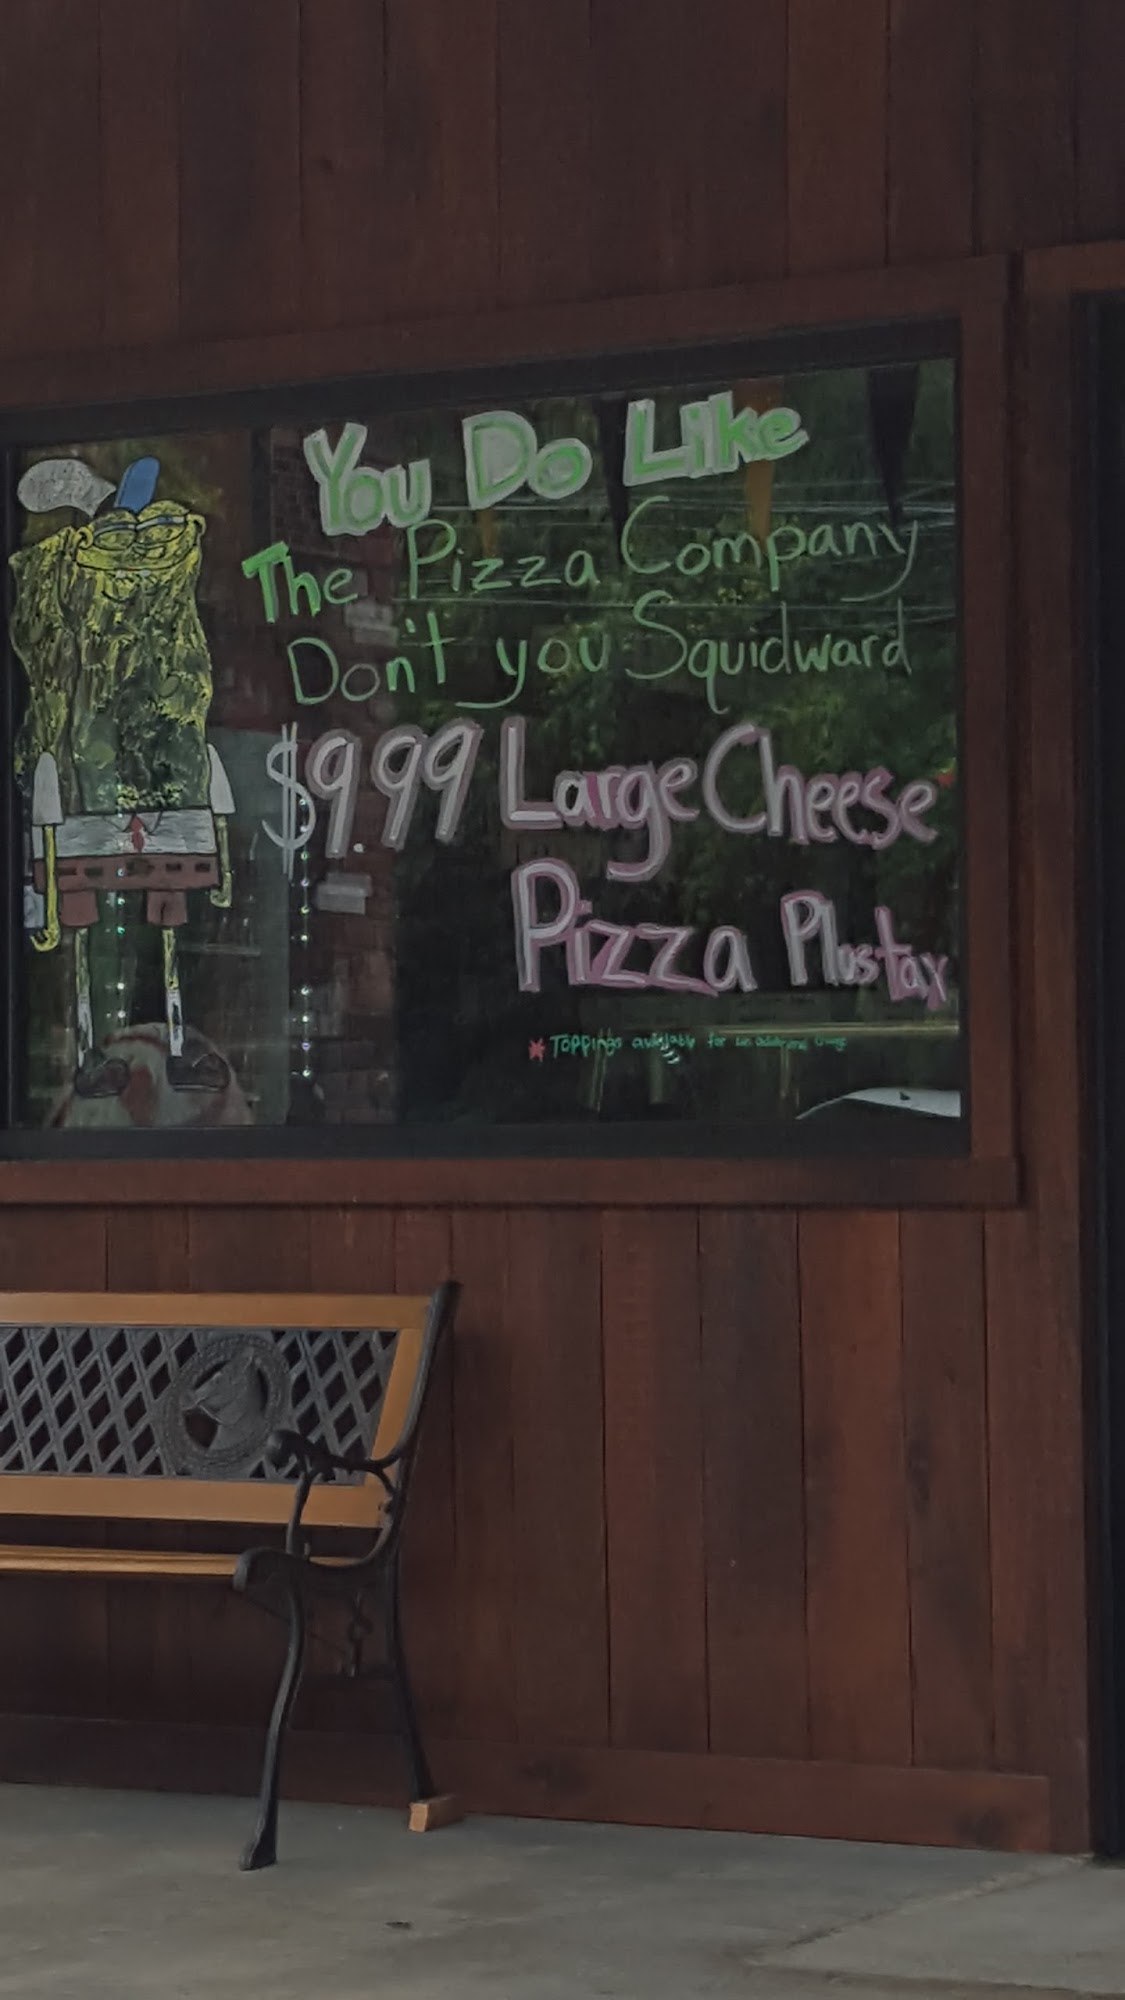 You Do Like
The Pizza Company
Don't you Squidward
$9.99 Large Cheese
Pizza Plus tax
* Toppings available for an additional charge